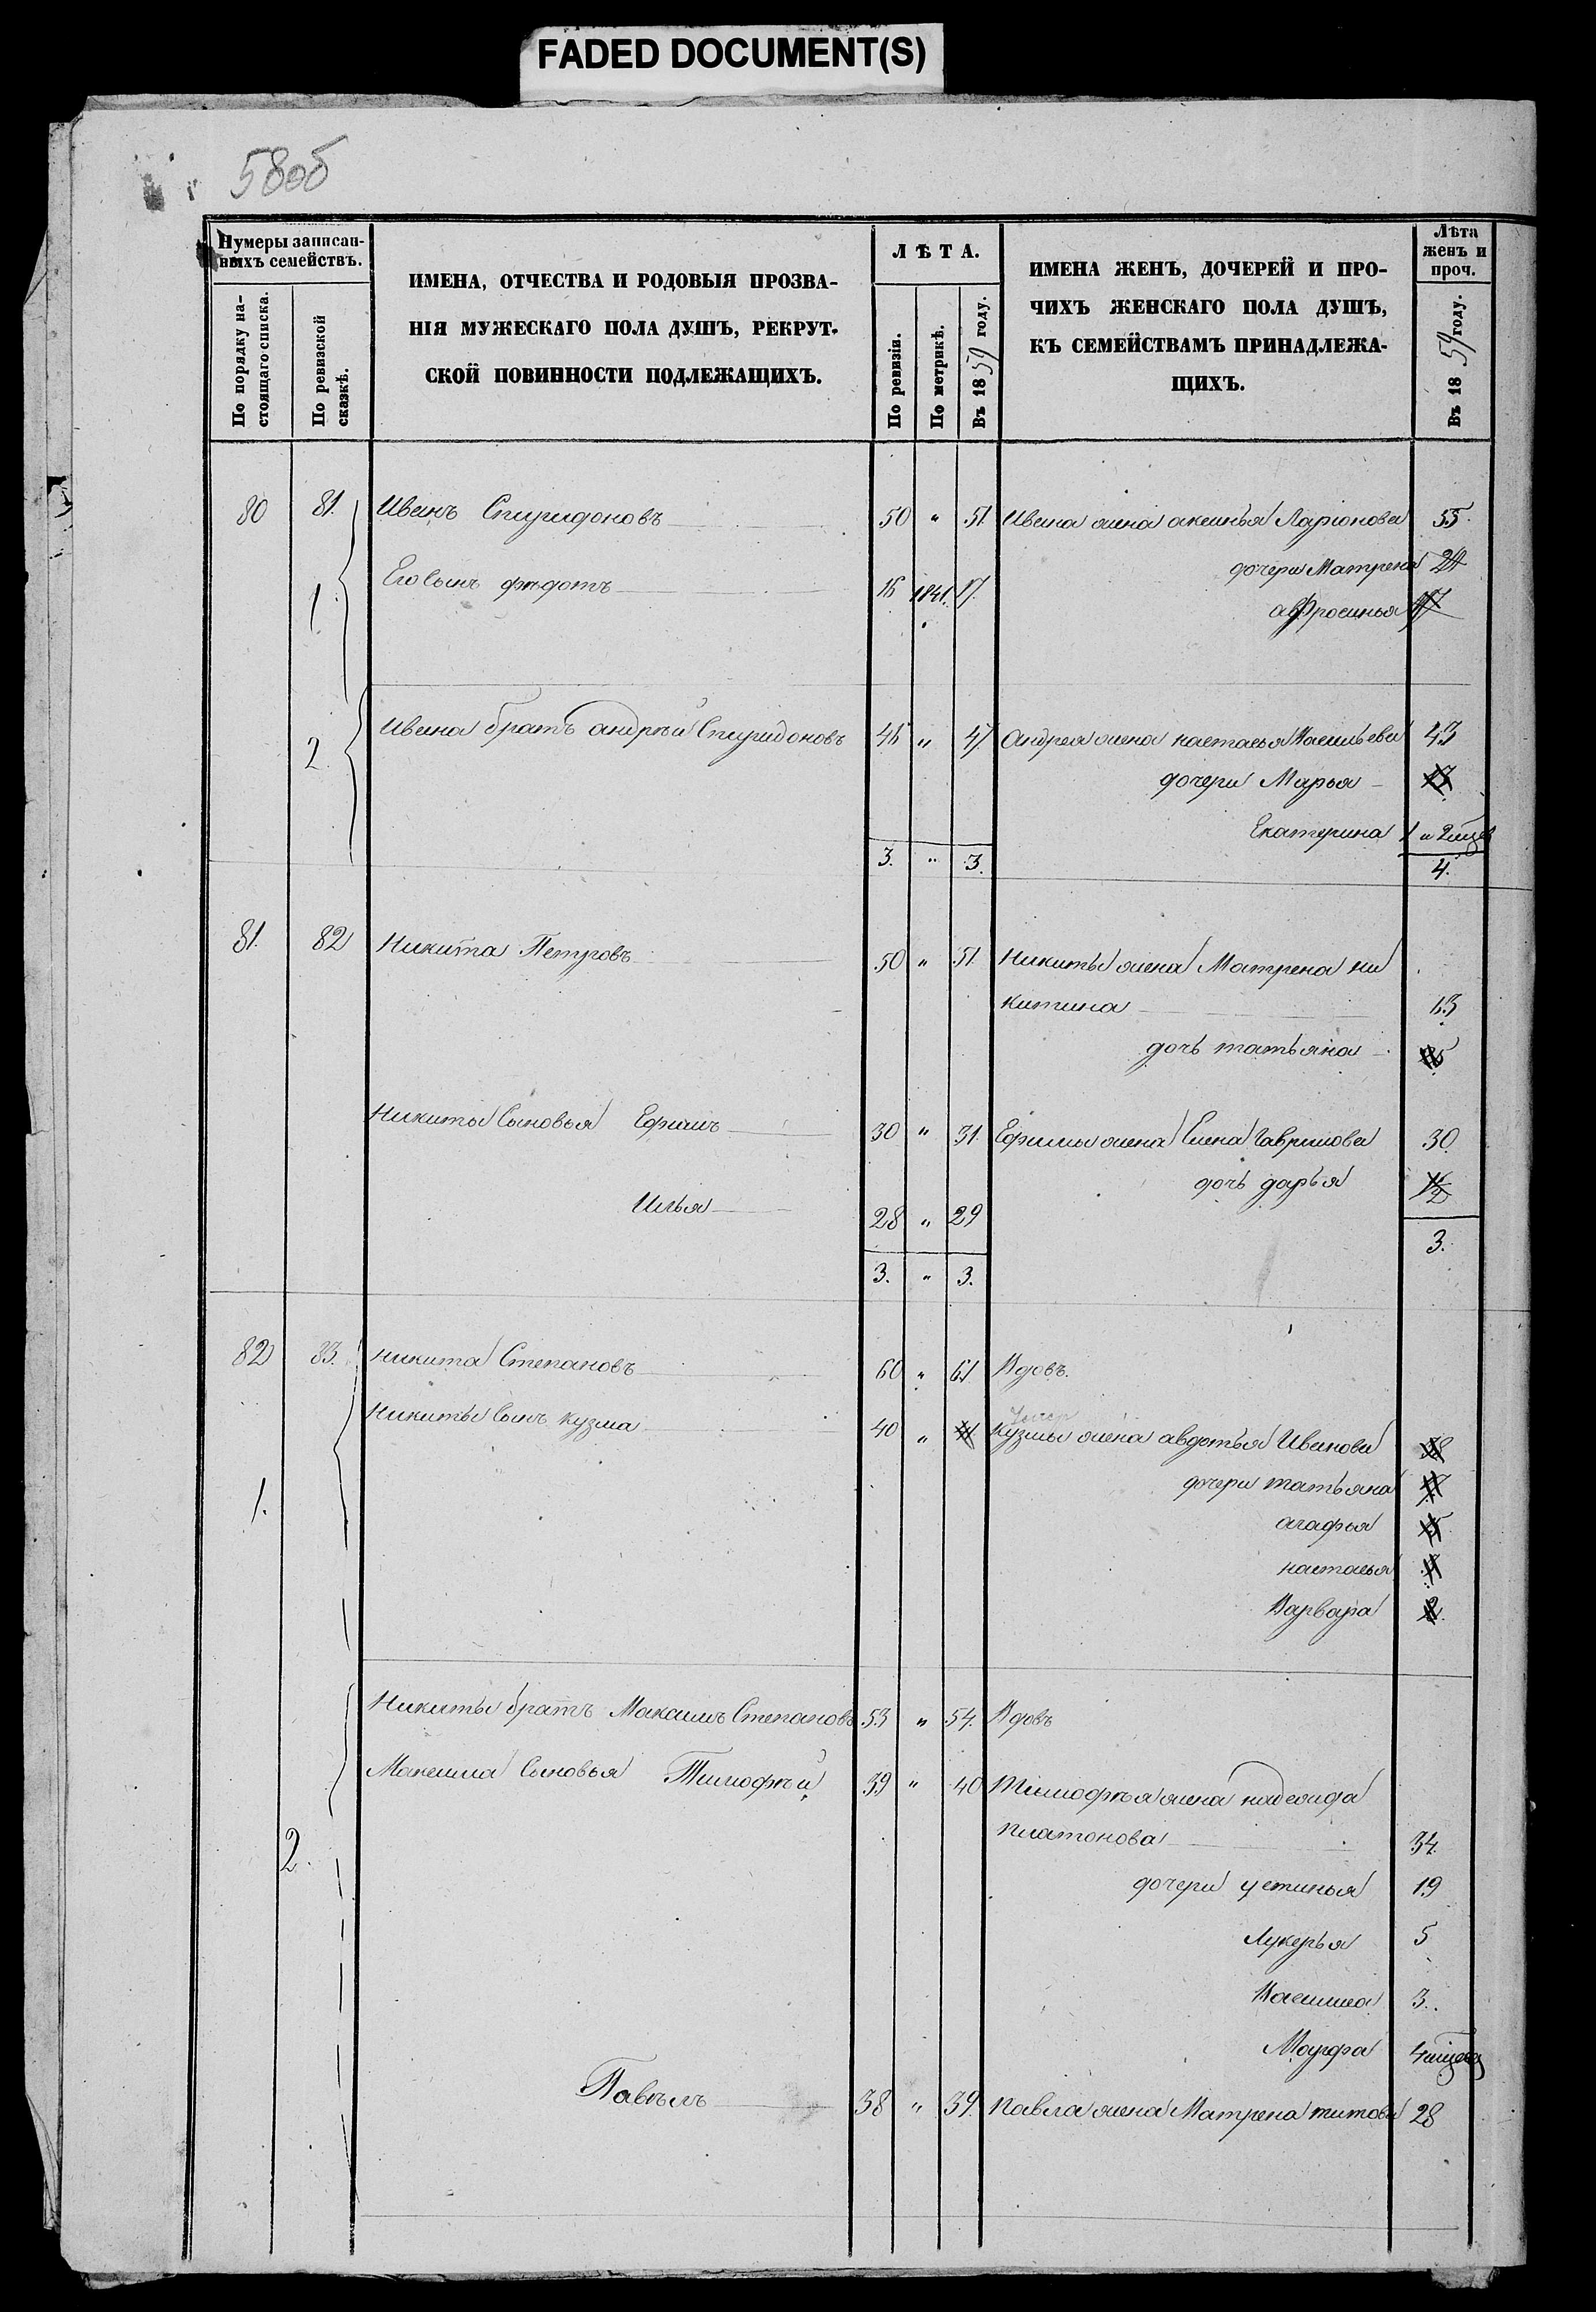 FADED DOCUMENT(S)
58об
Нумеры записан-
ныхъ семействъ.
По порядку на-
стоящаго списка.
По ревизской
сказкѣ.
ИМЕНА, ОТЧЕСТВА И РОДОВЫЯ ПРОЗВА-
НІЯ МУЖЕСКАГО ПОЛА ДУШЪ, РЕКРУТ-
СКОЙ ПОВИННОСТИ ПОДЛЕЖАЩИХЪ.
ЛѢТА.
По ревизіи.
По метрикѣ.
Въ 1859 году.
ИМЕНА ЖЕНЪ, ДОЧЕРЕЙ И ПРО-
ЧИХЪ ЖЕНСКАГО ПОЛА ДУШЪ,
КЪ СЕМЕЙСТВАМЪ ПРИНАДЛЕЖА-
ЩИХЪ.
Лѣта
женъ и
проч.
Въ 1859 году.
80 81. Иванъ Спиридоновъ 50 " 51. Ивана жена аксинья Ларіонова 55.
дочери Матрена 24
1 Его сынъ ѳедотъ 16 1841. 17.
афросинья 17
2. Ивана братъ андрѣй Спиридоновъ 46 " 47 Андрея жена настасья Васильева 43
дочери Марья
Екатерина 1 и 2 мцев
3. " 3. 4.
81. 82 Никита Петровъ 50 " 51. Никиты жена Матрена ни
китина 53
дочь татьяна
Никиты Сыновья Ефимъ 30 " 31. Ефима жена Елена Гаврилова 30.
дочь дарья
Илья 28 " 29
3.
3. " 3.
82 83. Никита Степановъ 60 " 61 Вдовъ.
Никиты Сынъ кузма 40 " 41 Кузмы жена авдотья Иванова 38
дочери татьяна
1. агафья
настасья
Варвара
Никиты братъ Максимъ Степановъ 53 " 54. Вдовъ
Максима Сыновья Тимофѣй 39 " 40 Тимофѣя жена надежда
платонова 34.
2. дочери устинья 19
Лукерья 5
Василиса 3.
Марфа 4 мцев
Павѣлъ 38 " 39. Павла жена Матрена титова 28